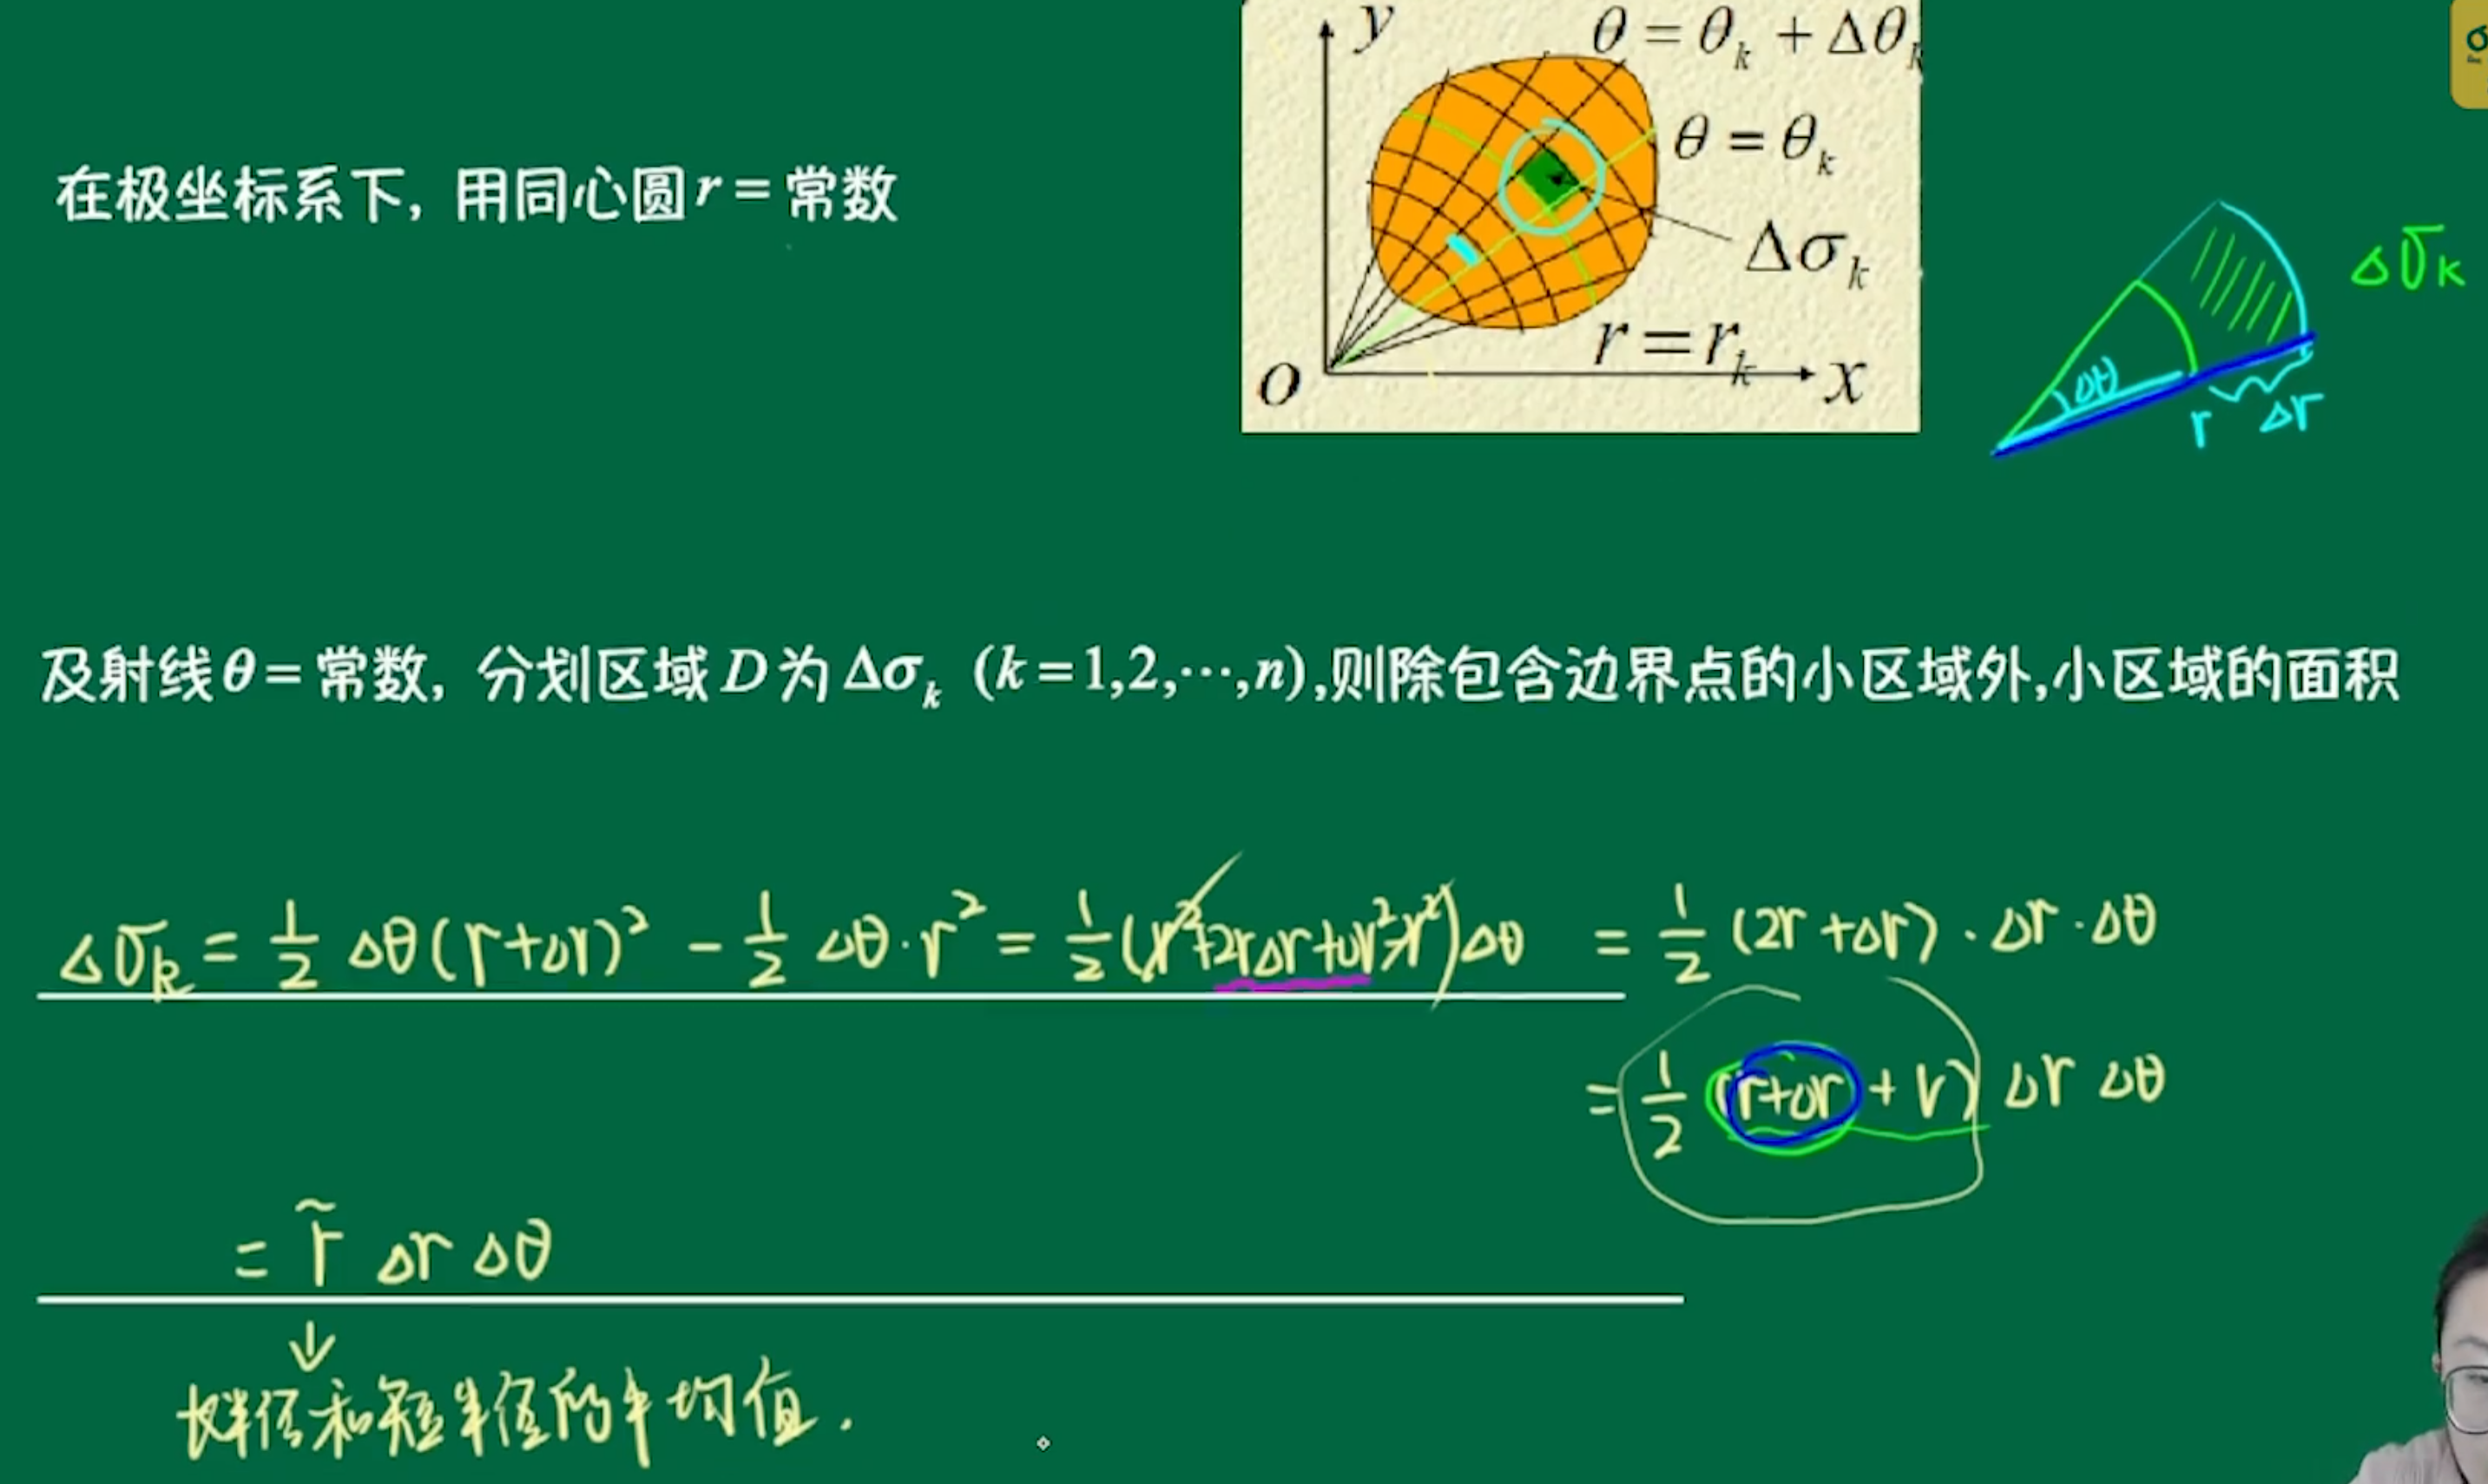 y
θ = θk + Δθk
θ = θk
Δσk
r = rk
O
x
在极坐标系下, 用同心圆r = 常数
Δσk
Δθ
r
Δr
及射线θ = 常数, 分划区域D为Δσk (k = 1,2,⋯,n),则除包含边界点的小区域外,小区域的面积
Δσk = 1/2 Δθ(r+Δr)² − 1/2 Δθ·r² = 1/2 (r²+2rΔr+Δr²−r²)Δθ = 1/2 (2r+Δr)·Δr·Δθ
= 1/2 (r+Δr + r) Δr Δθ
= r̃ Δr Δθ
↓
长半径和短半径的平均值.